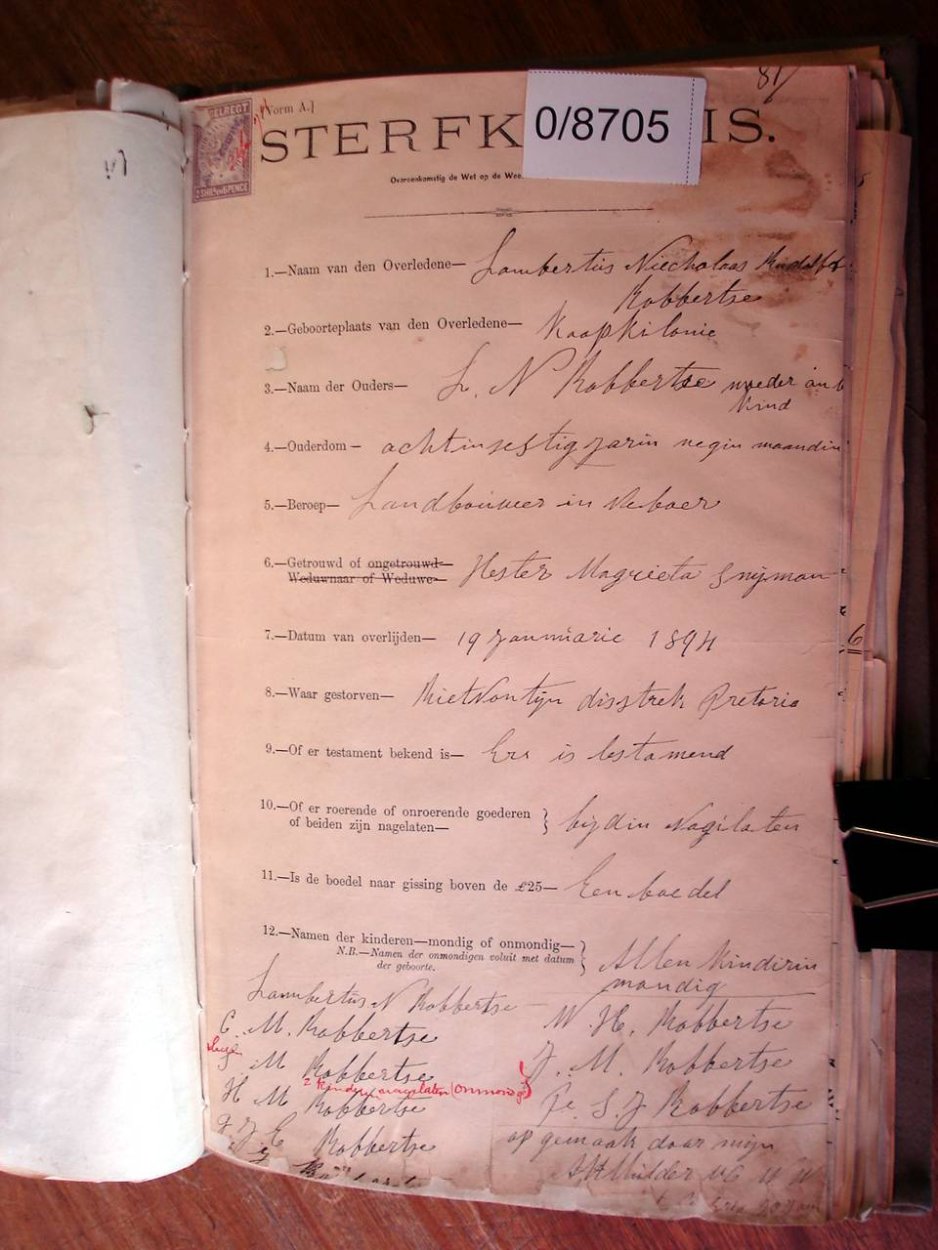 81
[Vorm A.]
STERFK 0/8705 IS.
ZELREGT
Overeenkomstig de Wet op de Wee
1.—Naam van den Overledene— Lambertus Niecholaas
Robbertse
2.—Geboorteplaats van den Overledene— Kaapkilonie
3.—Naam der Ouders— L. N Robbertse moeder
kind
4.—Ouderdom— achtinsestig jarin negin maandin
5.—Beroep— Landbouwer in Veboer
6.—Getrouwd of ongetrouwd— Hester Magrieta Snijman
Weduwnaar of Weduwe—
7.—Datum van overlijden— 19 Januarie 1894
8.—Waar gestorven— Rietvontyn disstrek Pretoria
9.—Of er testament bekend is— Err is testamend
10.—Of er roerende of onroerende goederen
of beiden zijn nagelaten— } bijdin Nagilaten
11.—Is de boedel naar gissing boven de £25— Een boedel
12.—Namen der kinderen—mondig of onmondig— } Allen Kindirin
N.B.—Namen der onmondigen voluit met datum
der geboorte.
mondig
Lambertus N Robbertse
C. M. Robbertse W. H. Robbertse
S M Robbertse J. M. Robbertse
2 kinders nagelaten (onmondig)
H M Robbertse S. J Robbertse
J J E Robbertse op gemaak daar mijn
Mulder